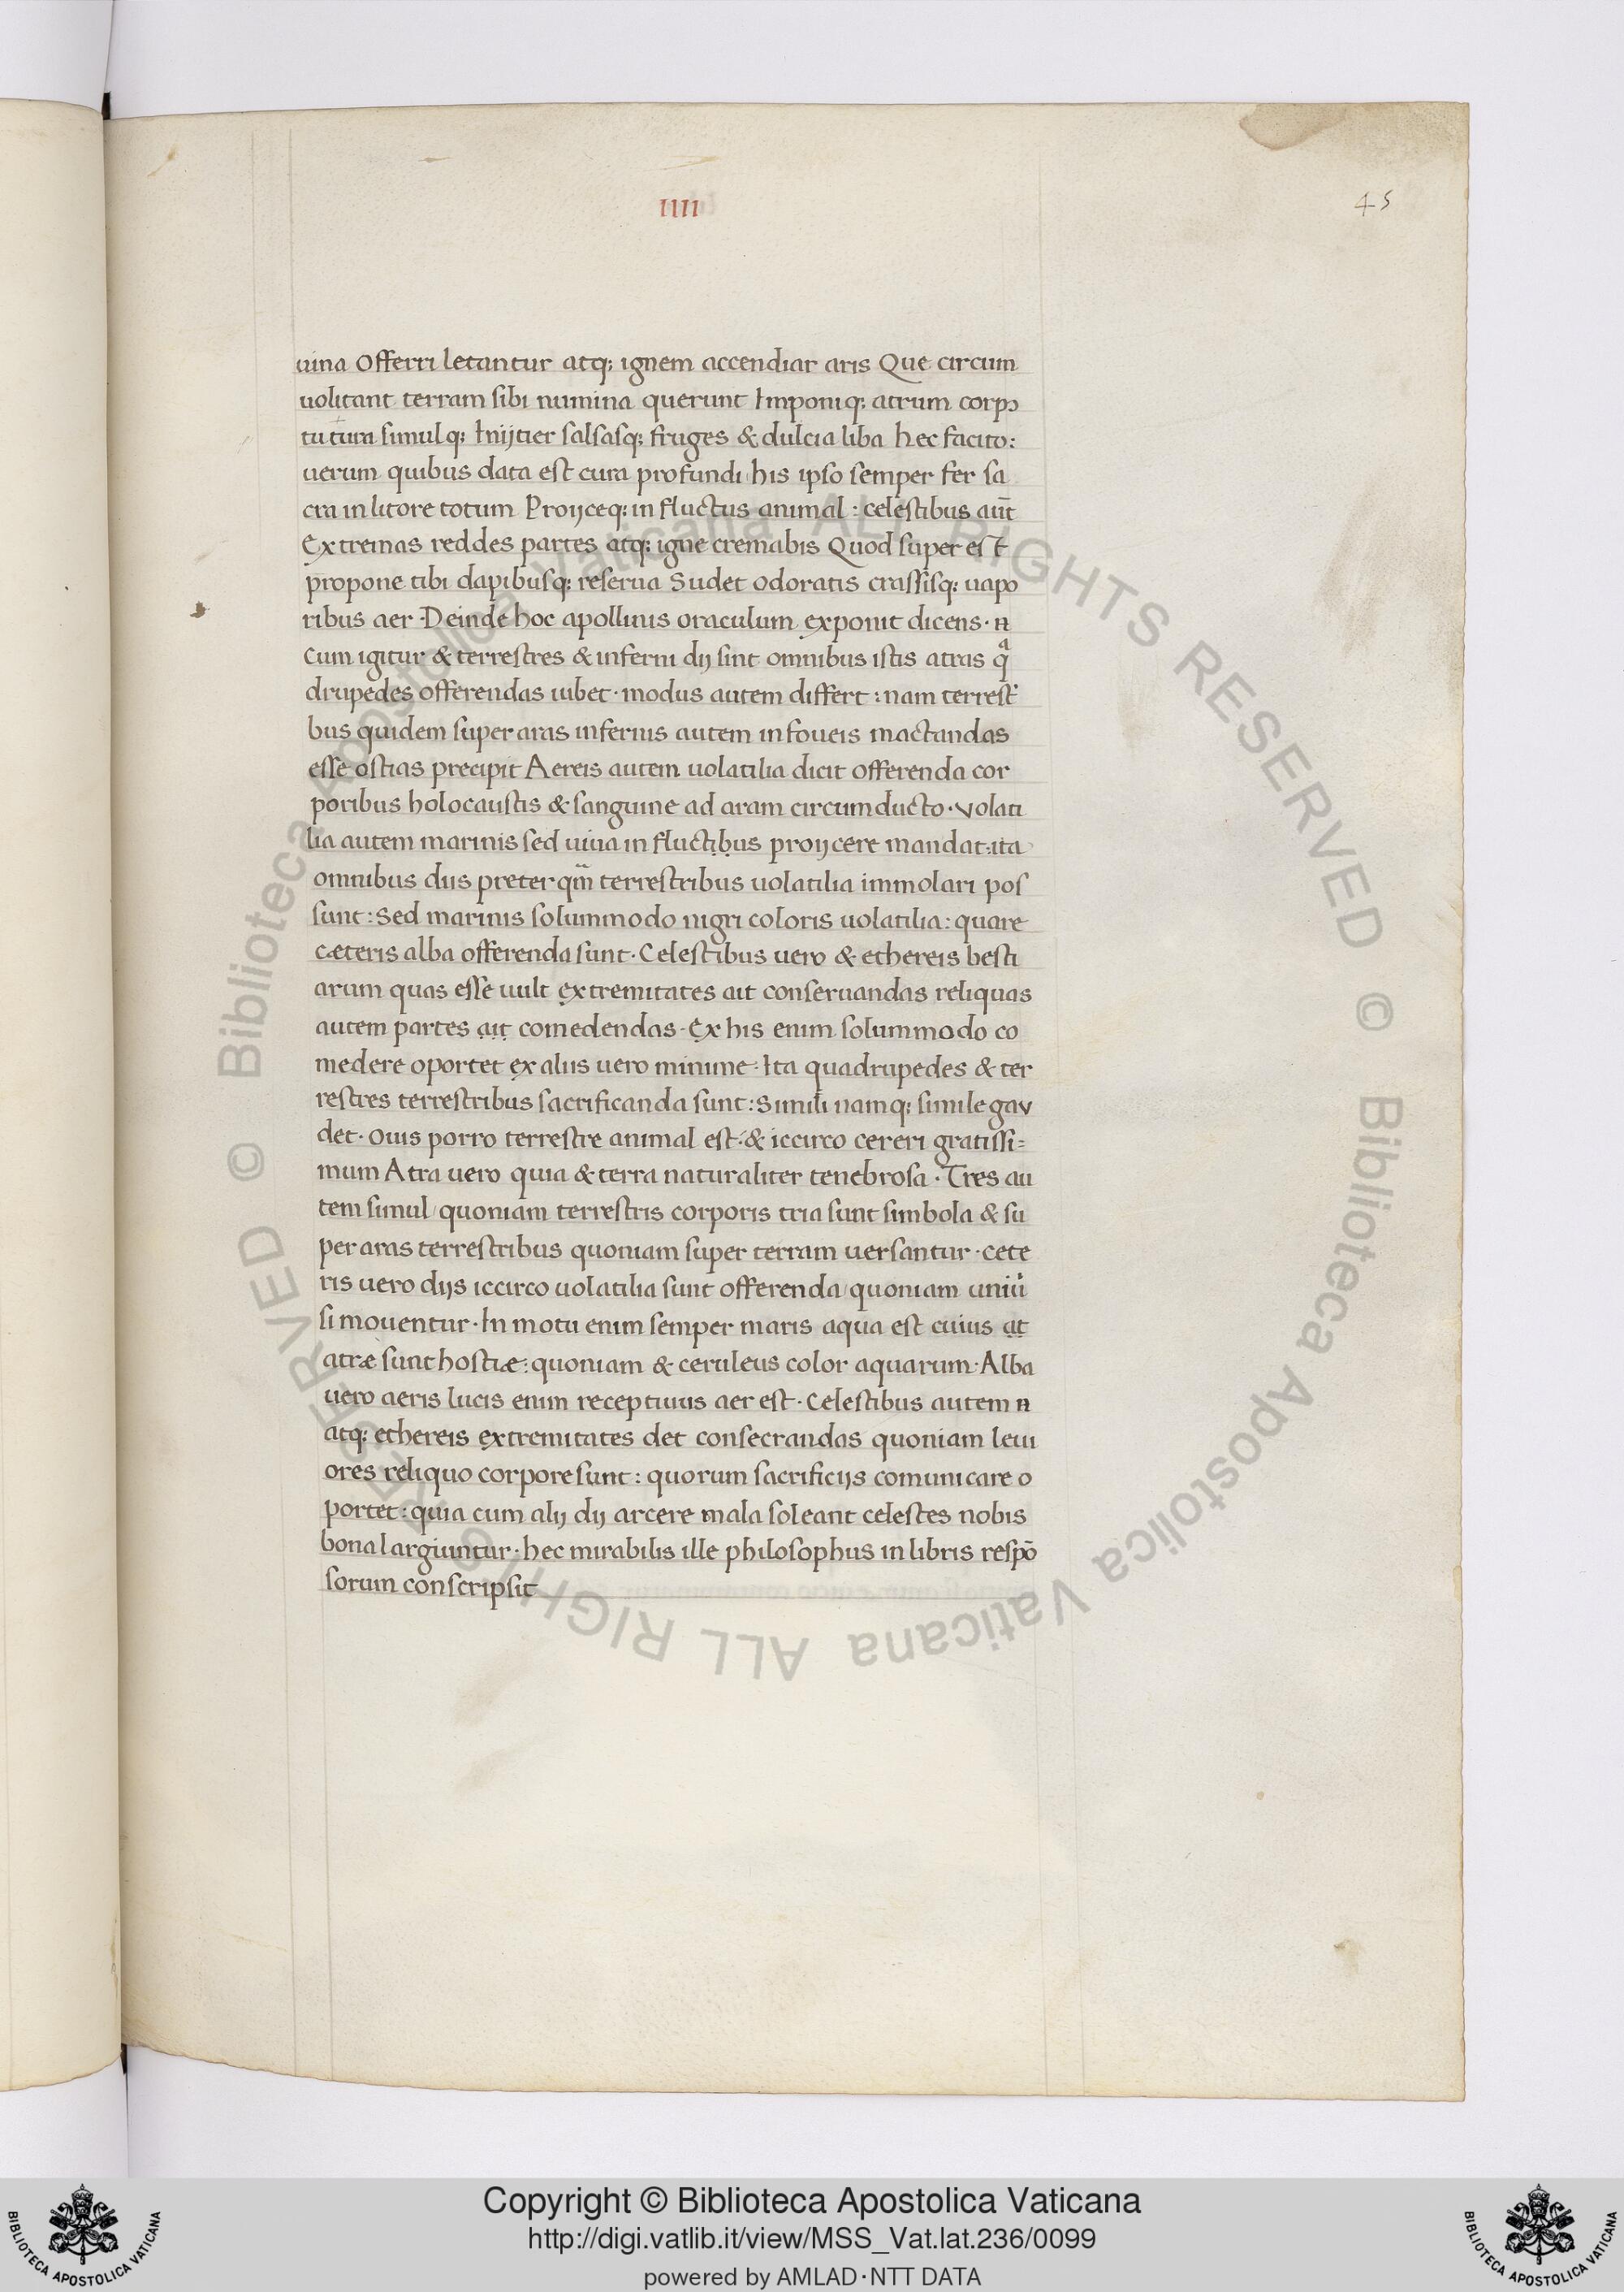 IIII
45
uina Offerri letantur atq; ignem accendiar aris Que circum
uolitant terram sibi numina querunt Imponiq; atrum corp
tu tura simulq; Inijcier salsasq; fruges & dulcia liba hec facito:
uerum quibus data est cura profundi his ipso semper fer sa
cra in litore totum Proijceq; in fluctus animal : celestibus aut̄
Extremas reddes partes atq; igne cremabis Quod super est
propone tibi dapibusq; reserua Sudet odoratis crassisq; uapo
ribus aer · Deinde hoc apollinis oraculum exponit dicens · n
Cum igitur & terrestres & inferni dij sint omnibus istis atras qᵃ
drupedes offerendas iubet · modus autem differt : nam terrest
bus quidem super aras infernis autem in foueis mactandas
esse ostias precipit Aereis autem uolatilia dicit offerenda cor
poribus holocaustis & sanguine ad aram circumducto · volati
lia autem marinis sed uiua in fluctibus proijcere mandat ita
omnibus diis preter qm̄ terrestribus uolatilia immolari pos
sunt : Sed marinis solummodo nigri coloris uolatilia : quare
cæteris alba offerenda sunt · Celestibus uero & ethereis besti
arum quas esse uult extremitates ait conseruandas reliquas
autem partes ait comedendas · Ex his enim solummodo co
medere oportet ex aliis uero minime · Ita quadrupedes & ter
restres terrestribus sacrificanda sunt : Simili namq; simile gav
det · Ouis porro terrestre animal est : & iccirco cereri gratissi=
mum Atra uero quia & terra naturaliter tenebrosa · Tres au
tem simul quoniam terrestris corporis tria sunt simbola & su
per aras terrestribus quoniam super terram uersantur · cete
ris uero dijs iccirco uolatilia sunt offerenda quoniam uniu
si mouentur · In motu enim semper maris aqua est cuius at
atræ sunt hostiæ : quoniam & ceruleus color aquarum · Alba
uero aeris lucis enim receptiuus aer est · Celestibus autem n
atq; ethereis extremitates det consecrandas quoniam leui
ores reliquo corpore sunt : quorum sacrificijs comunicare o
portet : quia cum alij dij arcere mala soleant celestes nobis
bona largiuntur · hec mirabilis ille philosophus in libris respō
sorum conscripsit
© Biblioteca Apostolica Vaticana ALL RIGHTS RESERVED © Biblioteca Apostolica Vaticana ALL RIGHTS RESERVED
Copyright © Biblioteca Apostolica Vaticana
http://digi.vatlib.it/view/MSS_Vat.lat.236/0099
powered by AMLAD·NTT DATA
BIBLIOTECA APOSTOLICA VATICANA
BIBLIOTECA APOSTOLICA VATICANA